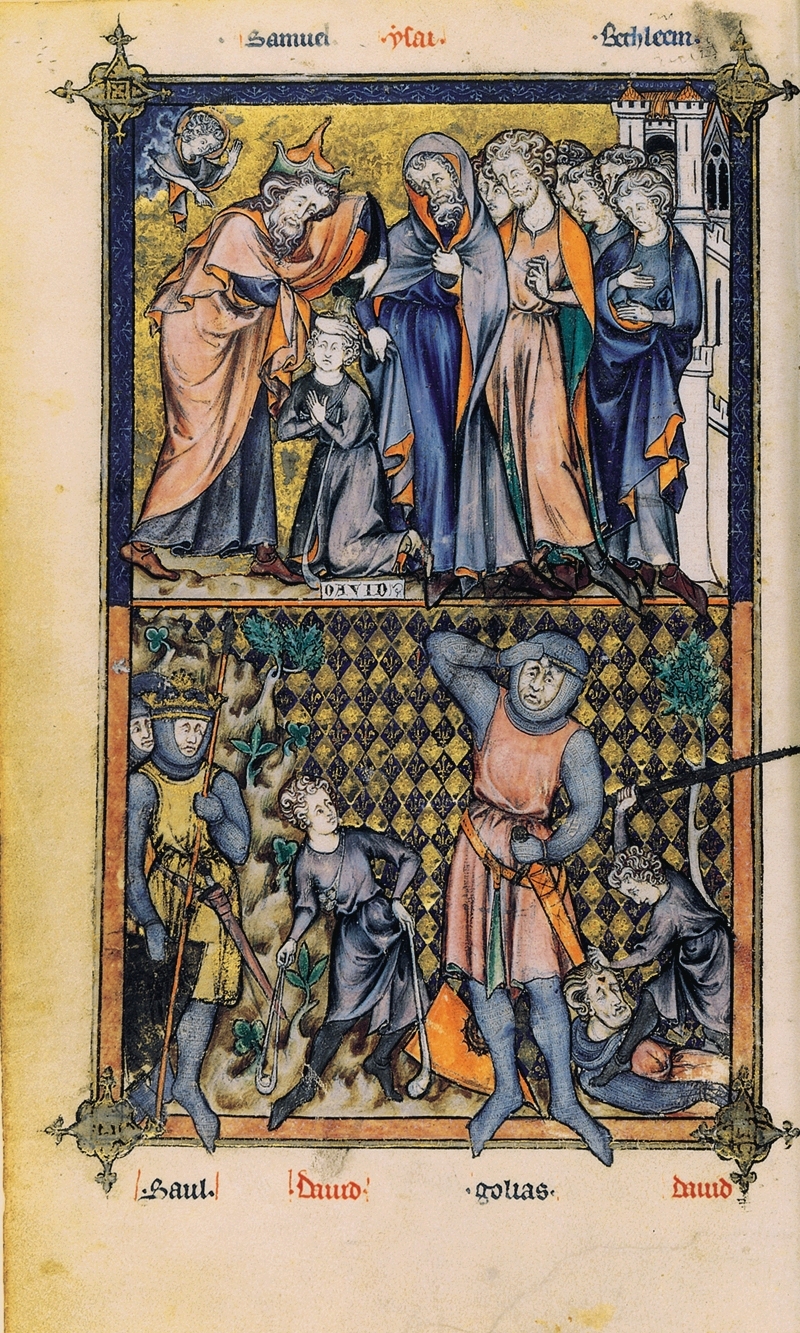 Samuel. ·ysai· ·Bethleem·
DAVID
·Saul· ·dauid· ·golias· dauid